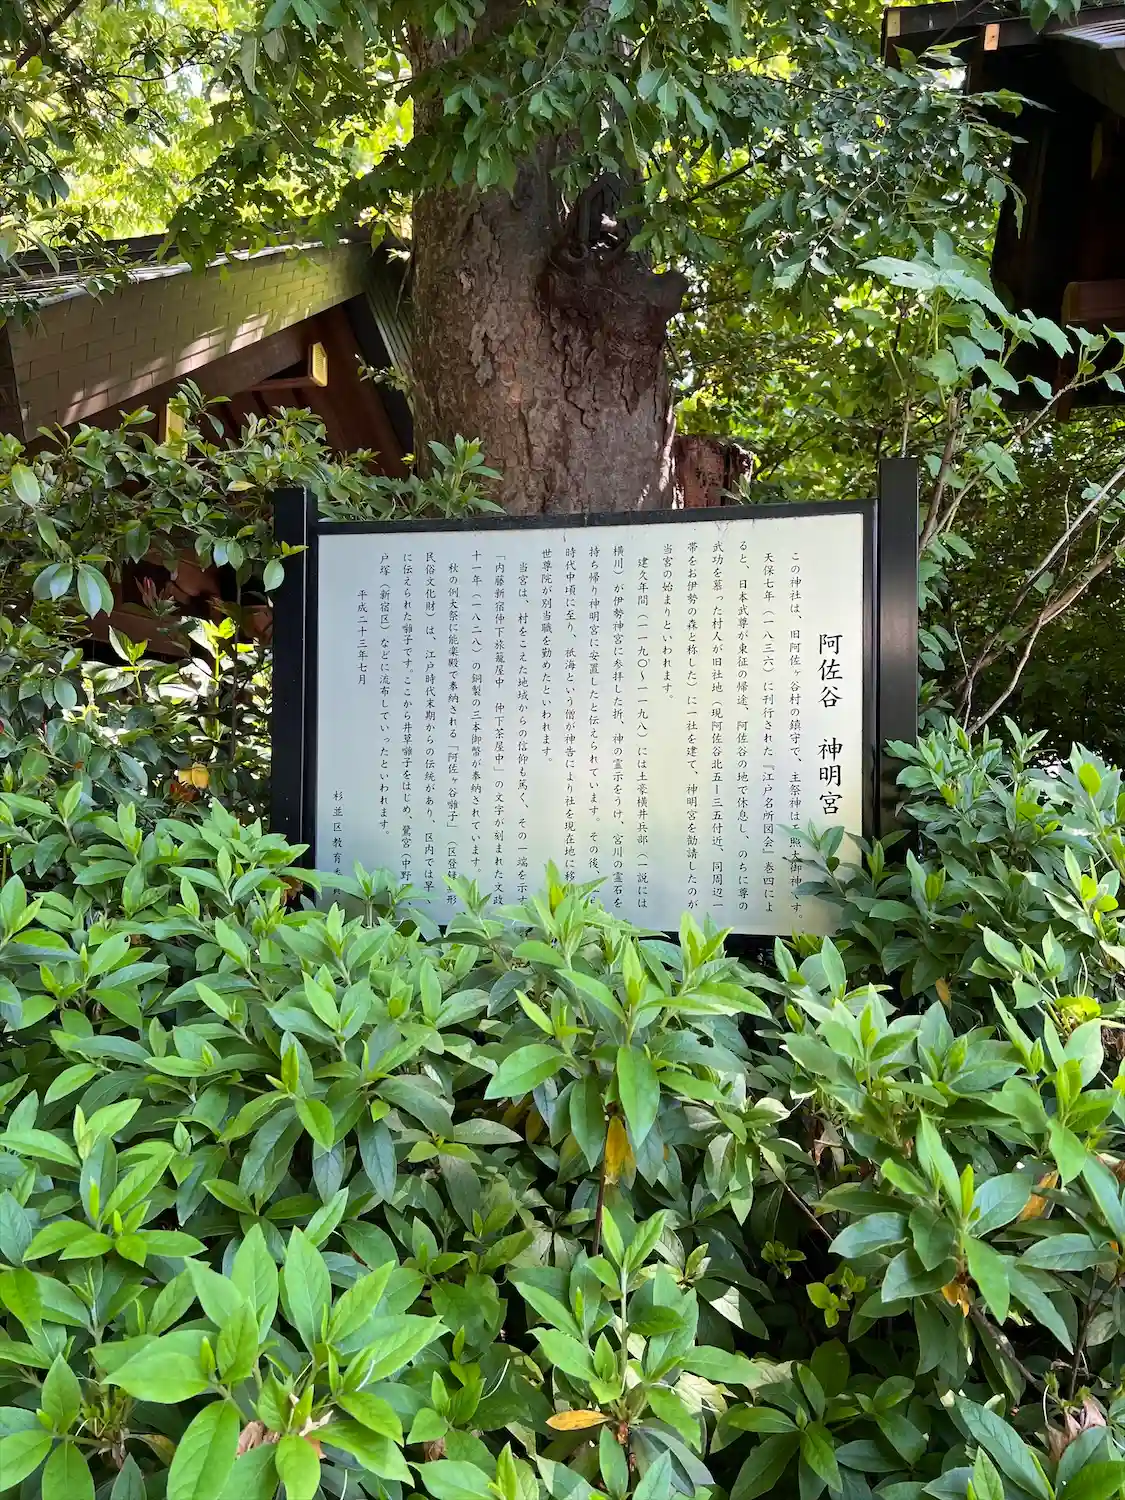 阿佐谷　神明宮
この神社は、旧阿佐ヶ谷村の鎮守で、主祭神は照大御神です。
天保七年（一八三六）に刊行された『江戸名所図会』巻四によ
ると、日本武尊が東征の帰途、阿佐谷の地で休息し、のちに尊の
武功を慕った村人が旧社地（現阿佐谷北五ー三五付近、同周辺一
帯をお伊勢の森と称した）に一社を建て、神明宮を勧請したのが
当宮の始まりといわれます。
建久年間（一一九〇〜一一九八）には土豪横井兵部（一説には
横川）が伊勢神宮に参拝した折、神の霊示をうけ、宮川の霊石を
持ち帰り神明宮に安置したと伝えられています。その後、
時代中頃に至り、祇海という僧が神告により社を現在地に移
世尊院が別当職を勤めたといわれます。
当宮は、村をこえた地域からの信仰も篤く、その一端を示す
「内藤新宿仲下旅籠屋中　仲下茶屋中」の文字が刻まれた文政
十一年（一八二八）の銅製の三本御幣が奉納されています。
秋の例大祭に能楽殿で奉納される「阿佐ヶ谷囃子」（区登録 形
民俗文化財）は、江戸時代末期からの伝統があり、区内では早
に伝えられた囃子です。ここから井草囃子をはじめ、鷺宮（中野
戸塚（新宿区）などに流布していったといわれます。
平成二十三年七月
杉並区教育